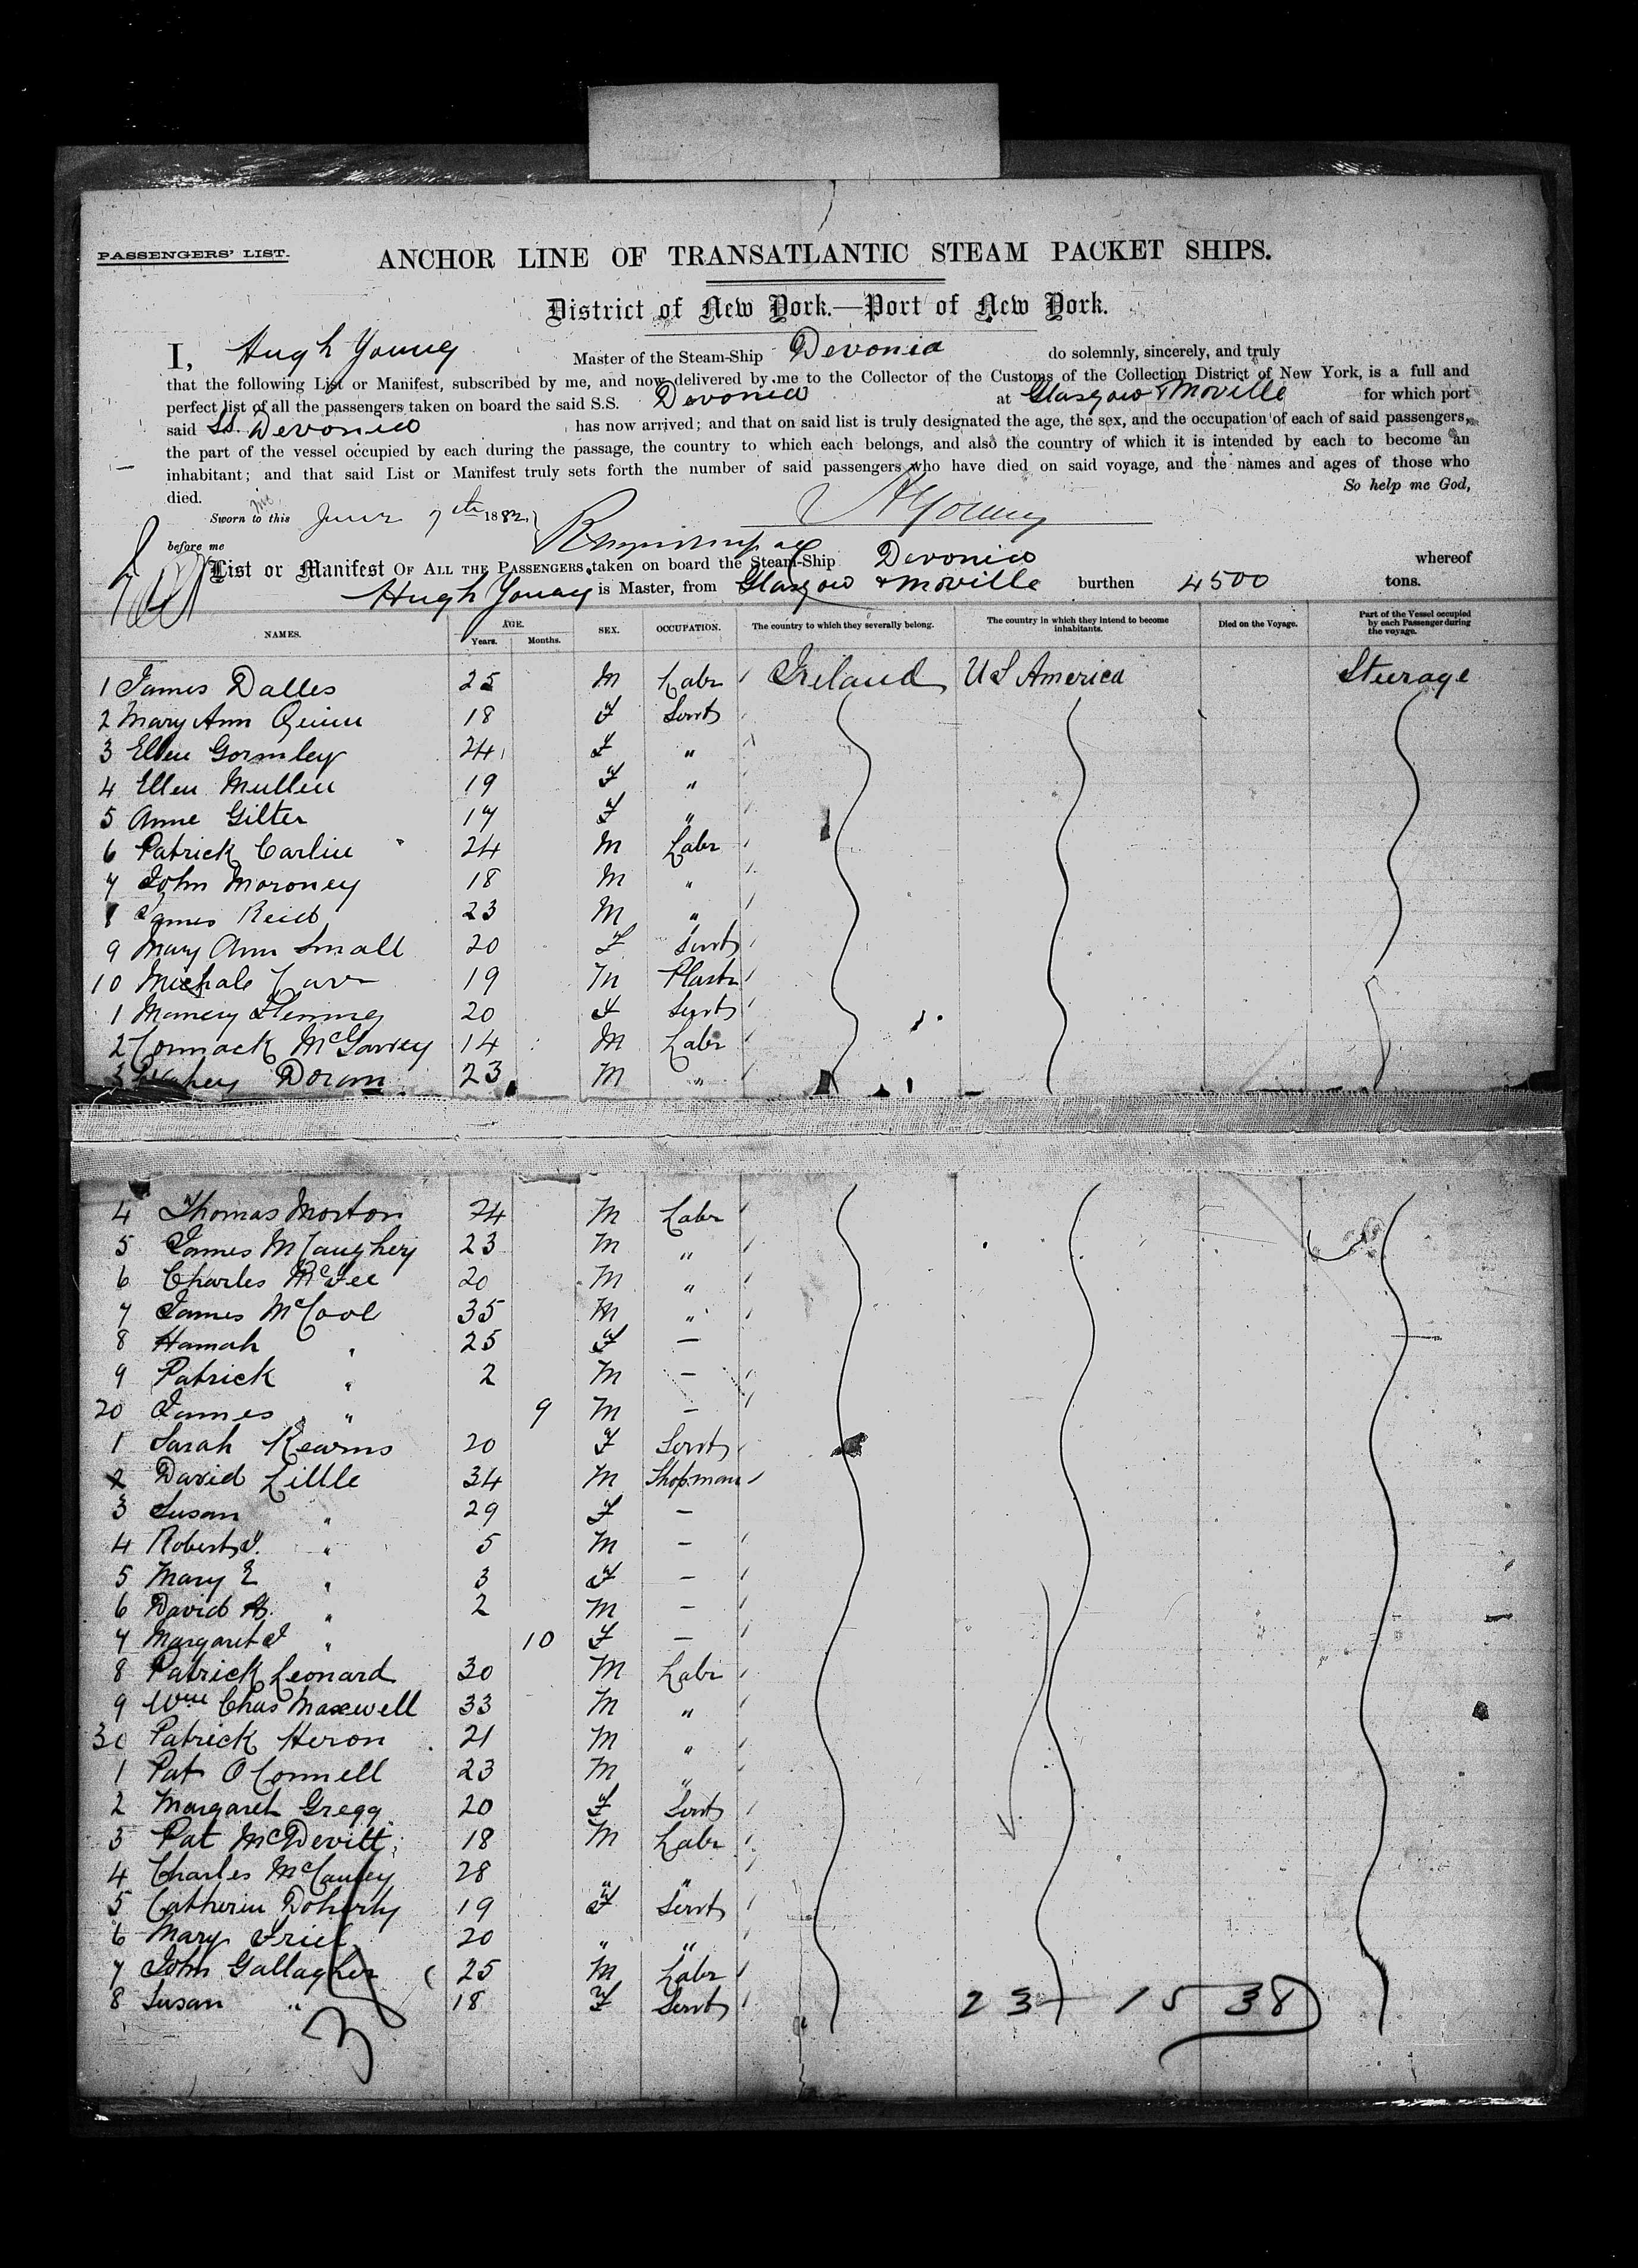 PASSENGERS' LIST.
ANCHOR LINE OF TRANSATLANTIC STEAM PACKET SHIPS.
District of New York.—Port of New York.
I, Hugh Young Master of the Steam-Ship Devonia do solemnly, sincerely, and truly
that the following List or Manifest, subscribed by me, and now delivered by me to the Collector of the Customs of the Collection District of New York, is a full and
perfect list of all the passengers taken on board the said S.S. Devonia at Glasgow & Moville for which port
said SS. Devonia has now arrived; and that on said list is truly designated the age, the sex, and the occupation of each of said passengers,
the part of the vessel occupied by each during the passage, the country to which each belongs, and also the country of which it is intended by each to become an
inhabitant; and that said List or Manifest truly sets forth the number of said passengers who have died on said voyage, and the names and ages of those who
died. So help me God,
Sworn to this June 7th 1882. H Young
before me
List or Manifest OF ALL THE PASSENGERS taken on board the Steam-Ship Devonia whereof
Hugh Young is Master, from Glasgow & Moville burthen 4500 tons.
NAMES. AGE. Years. Months. SEX. OCCUPATION. The country to which they severally belong. The country in which they intend to become inhabitants. Died on the Voyage. Part of the Vessel occupied by each Passenger during the voyage.
1 James Dalles 25 M Labr Ireland US America Steerage
2 Mary Ann Quinn 18 F Servt
3 Ellen Gormley 24 F "
4 Ellen Mullen 19 F "
5 Anne Gilter 17 F "
6 Patrick Carlin 24 M Labr
7 John Moroney 18 M "
8 James Reid 23 M "
9 Mary Ann Small 20 F Servt
10 Michale Carr 19 M Plastr
1 Fleming 20 F Servt
2 Connack McGarvey 14 M Labr
3 Doran 23 M "
4 Thomas Morton 24 M Labr
5 James McCaughey 23 M "
6 Charles McFee 20 M "
7 James McCool 35 M "
8 Hannah " 25 F —
9 Patrick " 2 M —
20 James " 9 M —
1 Sarah Kearns 20 F Servt
2 David Little 34 M Shopman
3 Susan " 29 F —
4 Robert J. " 5 M —
5 Mary E " 3 F —
6 David H. " 2 M —
7 Margaret J " 10 F —
8 Patrick Leonard 30 M Labr
9 Wm Chas Maxwell 33 M "
30 Patrick Heron 21 M "
1 Pat O Connell 23 M "
2 Margaret Gregg 20 F Servt
3 Pat McDevitt 18 M Labr
4 Charles McCauley 28 " "
5 Catherin Doherty 19 F Servt
6 Mary Friel 20 " "
7 John Gallagher 25 M Labr
8 Susan " 18 F Servt
23 + 15 38